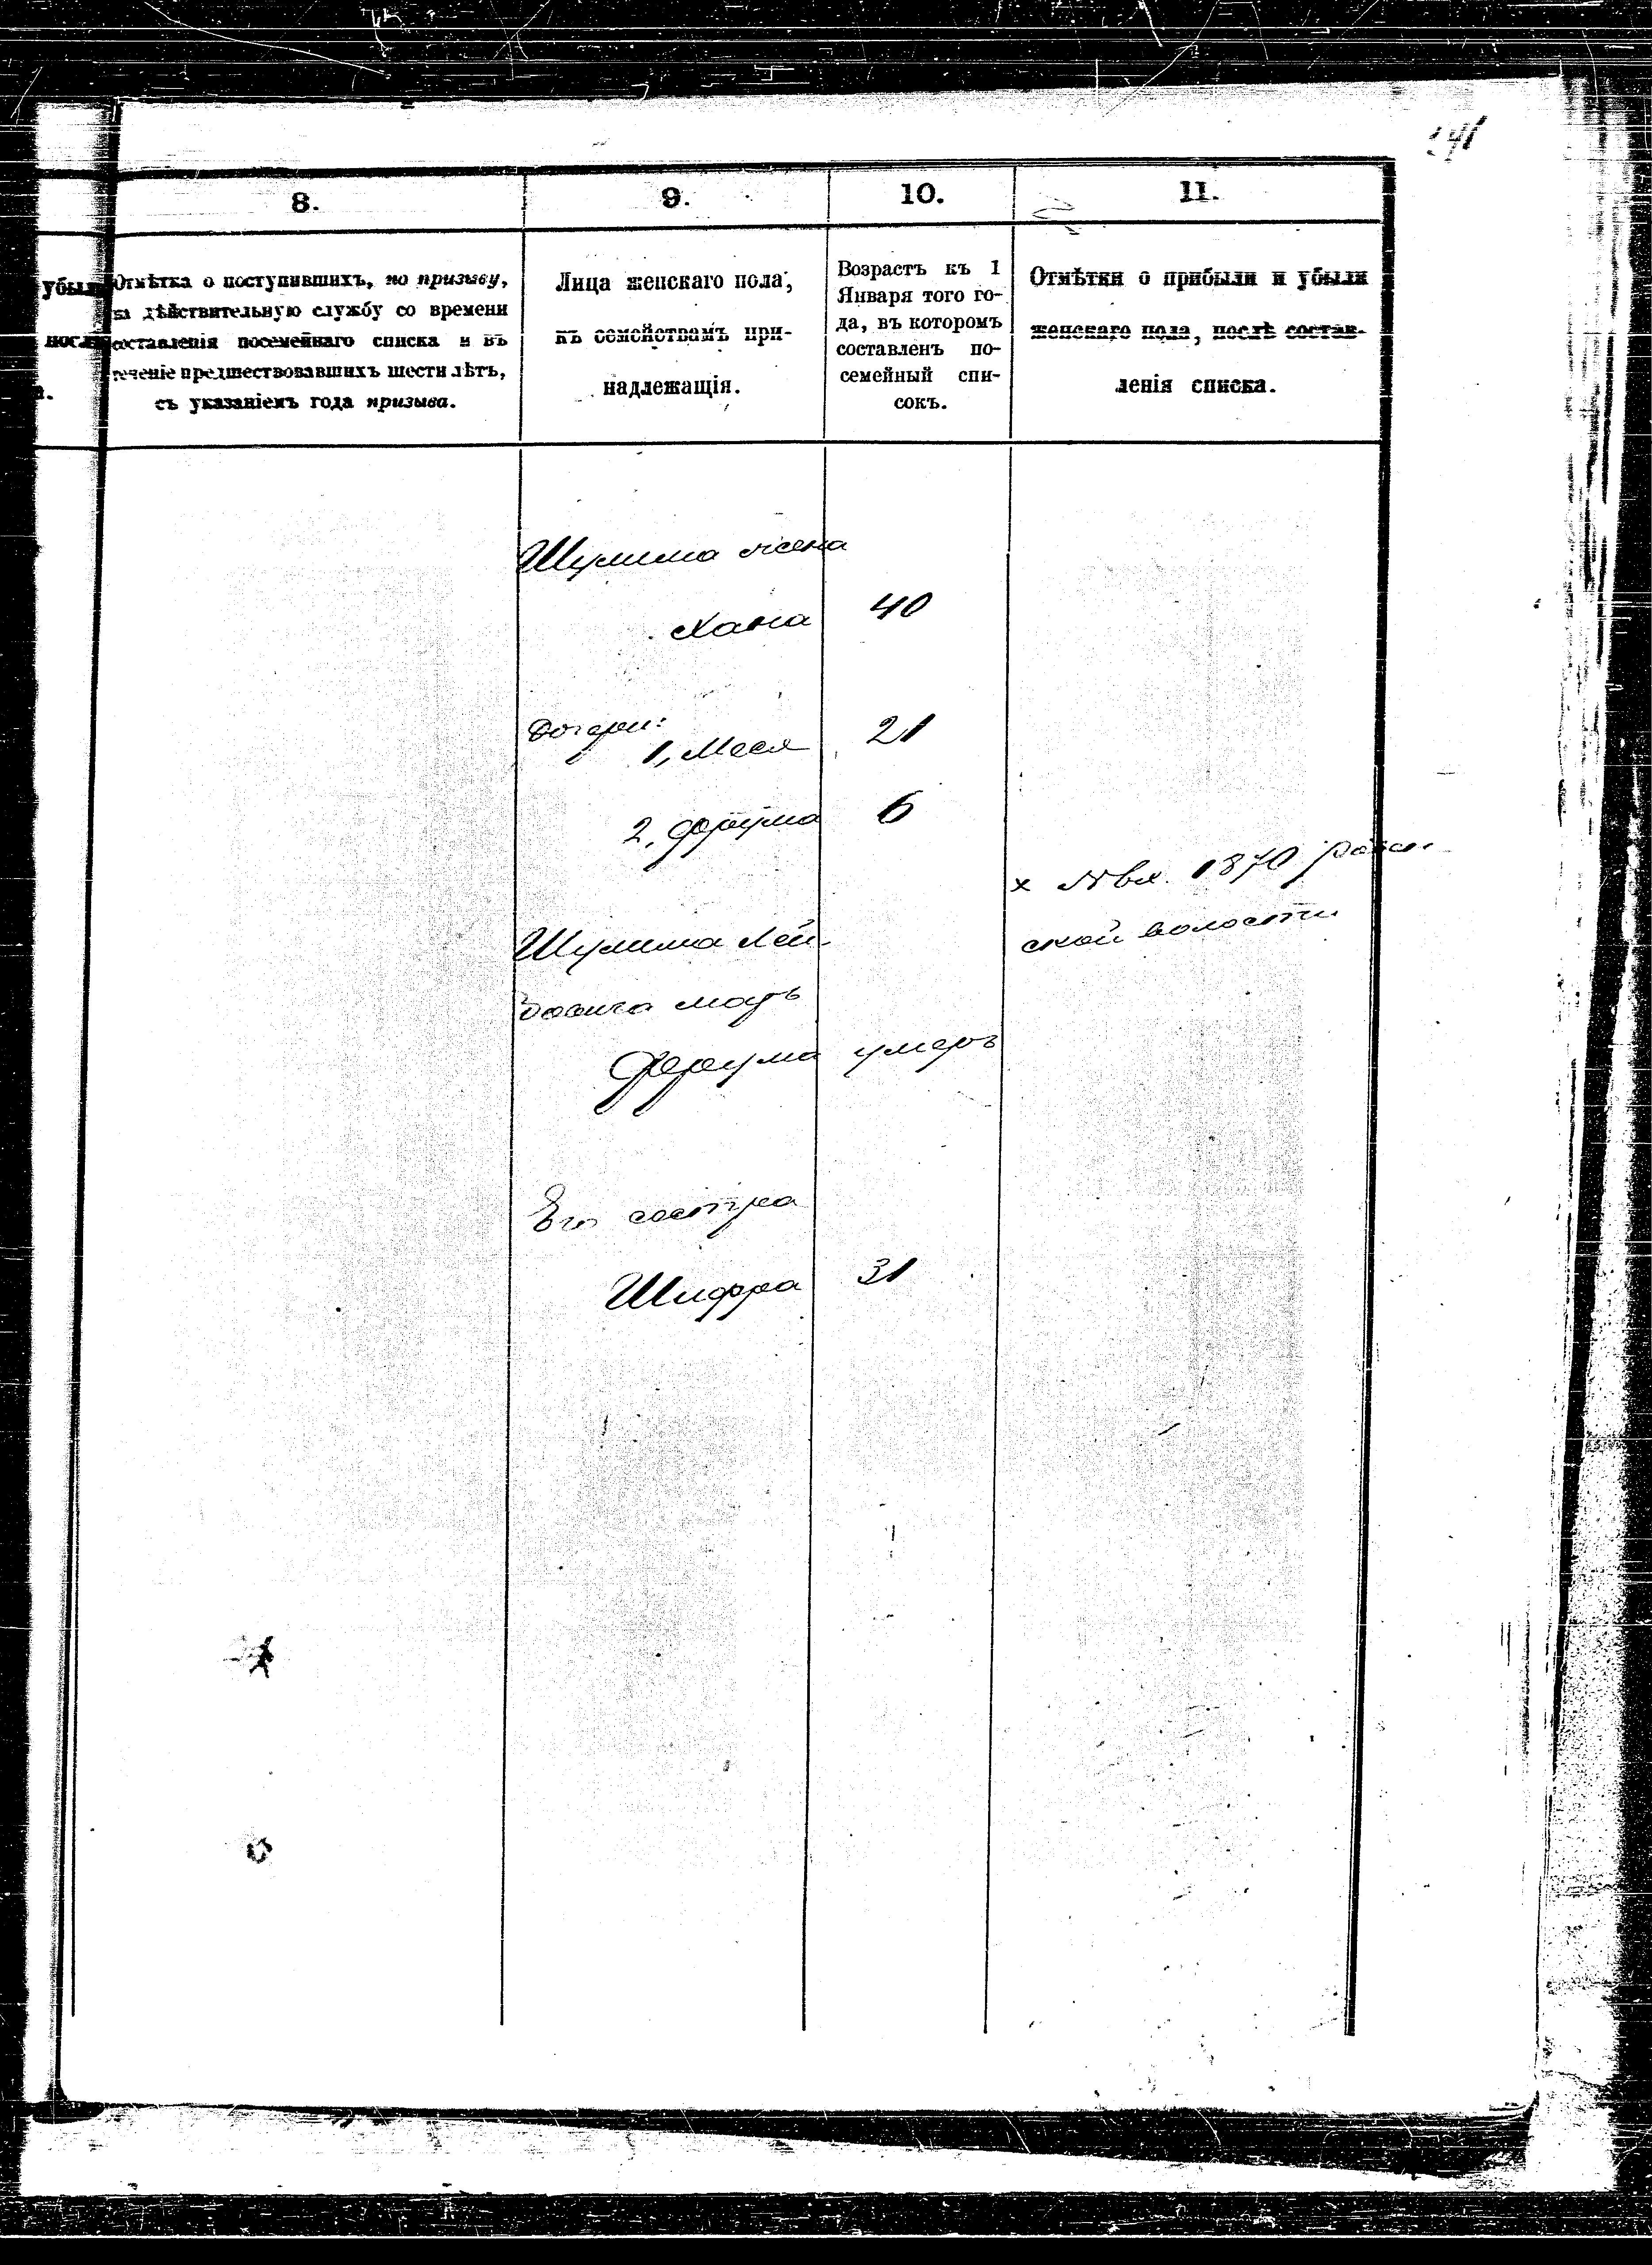 241
8.
9.
10.
11.
убыли
послѣ
Отмѣтка о поступившихъ, по призыву,
на дѣйствительную службу со времени
составленія посемейнаго списка и въ
теченіе предшествовавшихъ шести лѣтъ,
съ указаніемъ года призыва.
Лица женскаго пола,
къ семействамъ при-
надлежащія.
Возрастъ къ 1
Января того го-
да, въ которомъ
составленъ по-
семейный спи-
сокъ.
Отмѣтки о прибыли и убыли
женскаго пола, послѣ состав-
ленія списка.
Шулима жена
Хана 40
Дочери:
1, Меся 21
2, Фрума 6
х 1870
ской волости
Шулима Лей-
бовича мать
Фрума умерѣ
Его сестра
Шифра 31